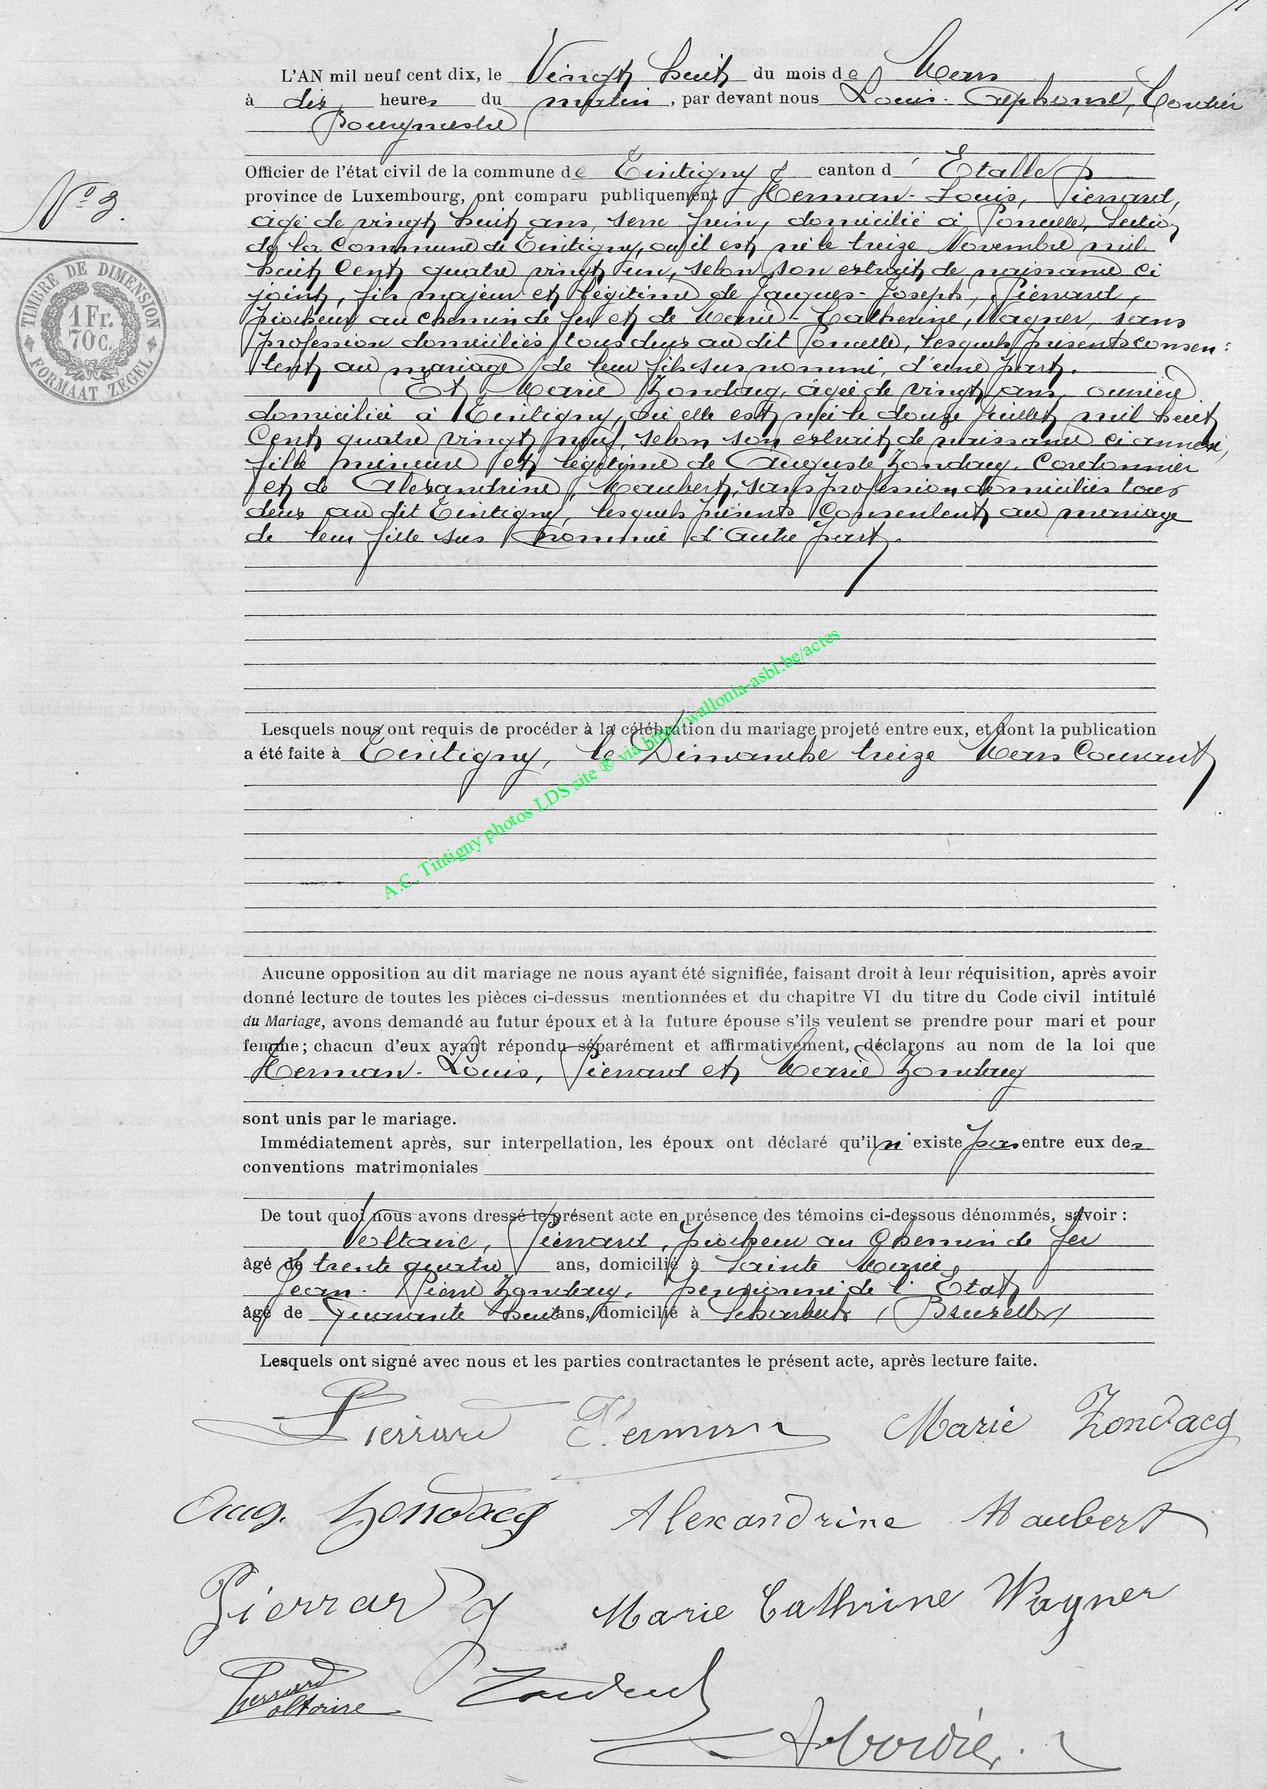 L'AN mil neuf cent dix, le Vingt huit du mois de Mars
à dix heures du matin, par devant nous Louis-Alphonse, Cordier
Bourgmestre
Officier de l'état civil de la commune de Tintigny canton d' Etalle
N° 3.
province de Luxembourg, ont comparu publiquement Herman-Louis, Pierrard,
âgé de vingt huit ans, domicilié à Poncelle, section
de la commune de Tintigny, où il est né le treize Novembre mil
huit cent quatre vingt un, selon son extrait de naissance ci
joint, fils majeur et légitime de Jacques-Joseph, Pierrard,
piocheur au chemin de fer et de Marie-Catherine, Wagner, sans
profession domiciliés tous deux au dit Poncelle, lesquels présents consen=
tent au mariage de leur fils sus nommé, d'une part.
Et Marie Zondacq, âgée de vingt ans, ouvrière
domiciliée à Tintigny, où elle est née le douze juillet mil huit
cent quatre vingt neuf, selon son extrait de naissance ci annexé,
fille mineure et légitime de Auguste Zondacq, cordonnier
et de Alexandrine, Maubert, sans profession domiciliés tous
deux au dit Tintigny, lesquels présents consentent au mariage
de leur fille sus nommée d'autre part.
TIMBRE DE DIMENSION
1 Fr.
70 C.
FORMAAT ZEGEL
Lesquels nous ont requis de procéder à la célébration du mariage projeté entre eux, et dont la publication
a été faite à Tintigny, le Dimanche treize Mars Courant
A.C. Tintigny photos LDS site ® via http://wallonia-asbl.be/actes
Aucune opposition au dit mariage ne nous ayant été signifiée, faisant droit à leur réquisition, après avoir
donné lecture de toutes les pièces ci-dessus mentionnées et du chapitre VI du titre du Code civil intitulé
du Mariage, avons demandé au futur époux et à la future épouse s'ils veulent se prendre pour mari et pour
femme; chacun d'eux ayant répondu séparément et affirmativement, déclarons au nom de la loi que
Herman-Louis, Pierrard et Marie Zondacq
sont unis par le mariage.
Immédiatement après, sur interpellation, les époux ont déclaré qu'il n'existe pas entre eux des
conventions matrimoniales
De tout quoi nous avons dressé le présent acte en présence des témoins ci-dessous dénommés, savoir :
Voltaire, Pierrard, piocheur au Chemin de fer
âgé de trente quatre ans, domicilié à Sainte Marie,
Jean-Pierre Zondacq, pensionné de l'Etat
âgé de Quarante huit ans, domicilié à Scharbeek (Bruxelles)
Lesquels ont signé avec nous et les parties contractantes le présent acte, après lecture faite.
Pierrard Herman Marie Zondacq
Aug. Zondacq Alexandrine Maubert
Pierrard J Marie Cathrine Wagner
Pierrard Zondack
Voltaire